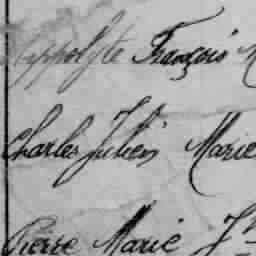 Hippolyte François
Charles Julien Marie
Pierre Marie J